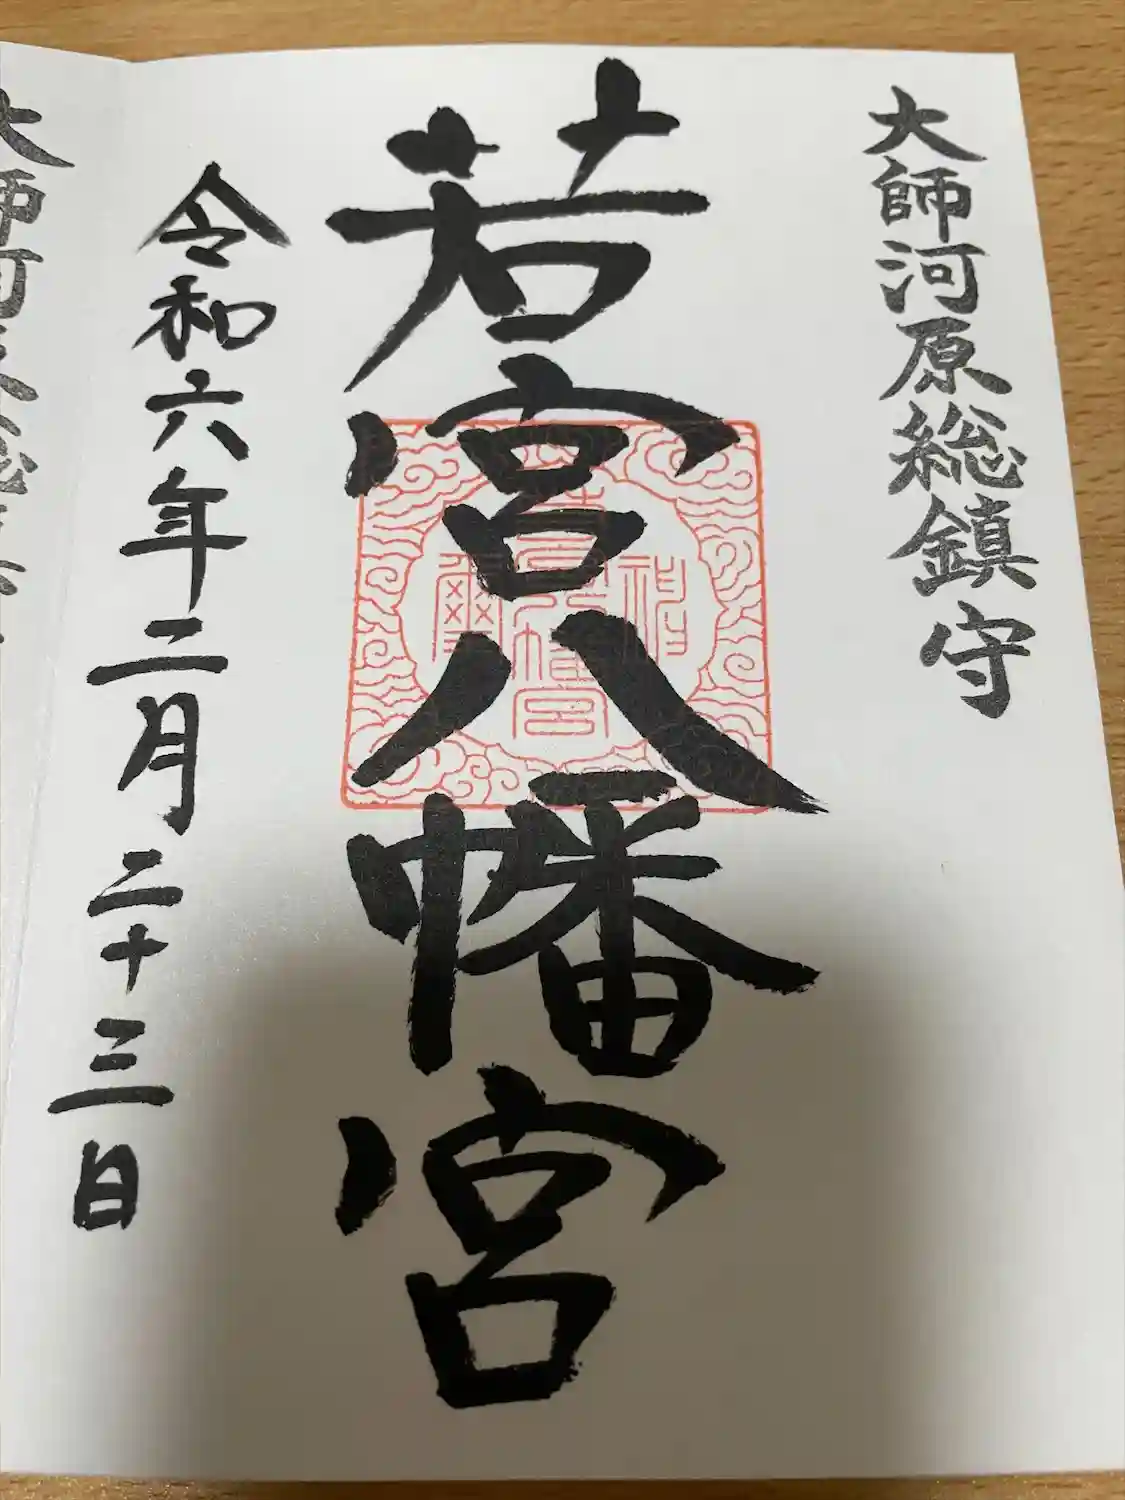 大師河原総鎮守
若宮八幡宮
令和六年二月二十三日
大師河原総鎮守